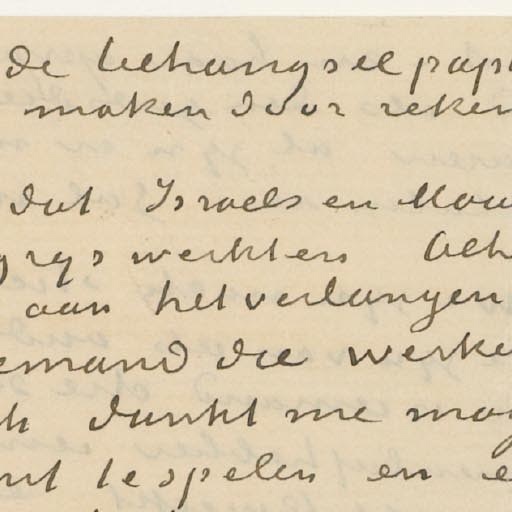 de behangsel papi
maken door reken
dat Israels en Mau
grys werkten beh
aan het verlangen
emand die werke
ch dunkt me mog
nt te spelen en e